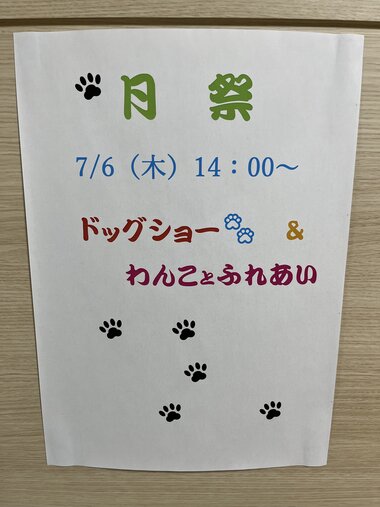 月 祭
7/6（木）14：00～
ドッグショー &
わんことふれあい